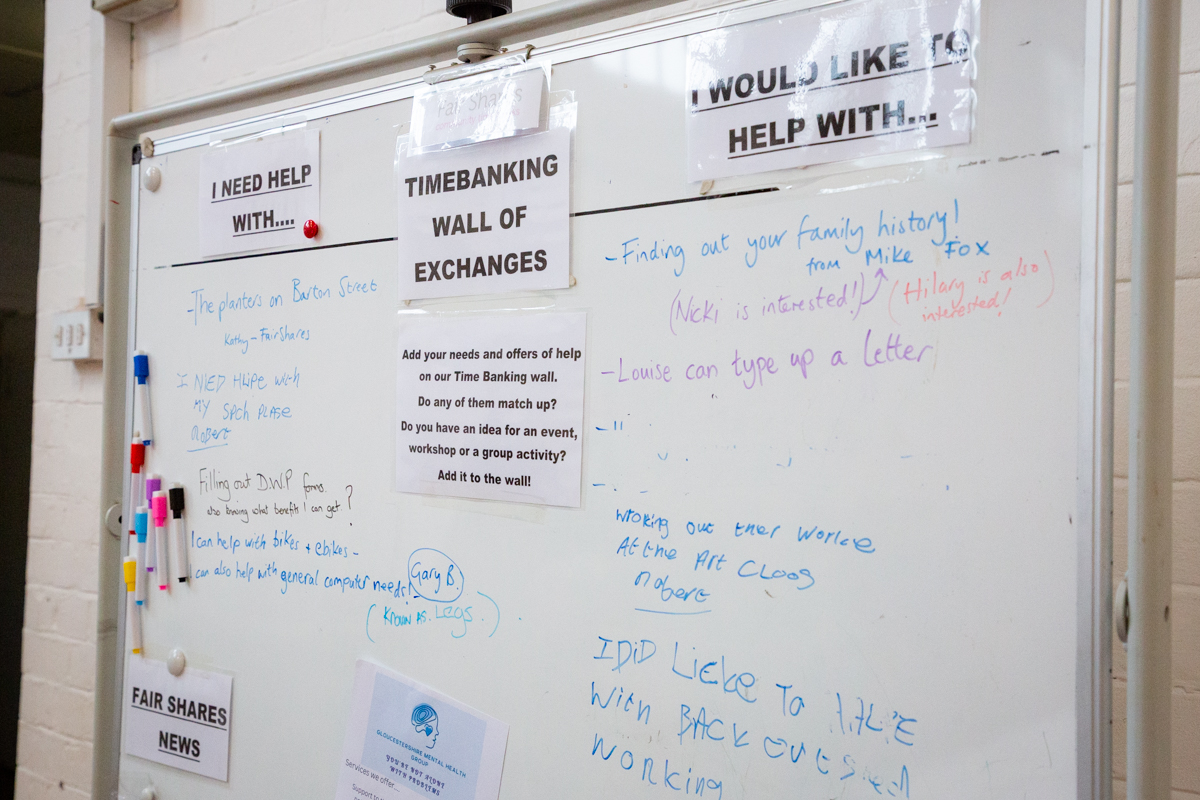 I NEED HELP
WITH....
Fair Shares
TIMEBANKING
WALL OF
EXCHANGES
I WOULD LIKE TO
HELP WITH...
-The planters on Barton Street
Kathy-FairShares
I NIED HLIPE with
MY SPCH PLASE
Robert
Filling out D.W.P forms
also knowing what benefits I can get?
I can help with bikes + ebikes-
I can also help with general computer needs!
Gary B.
(Known As. Legs.)
Add your needs and offers of help
on our Time Banking wall.
Do any of them match up?
Do you have an idea for an event,
workshop or a group activity?
Add it to the wall!
-Finding out your family history!
from Mike Fox
(Nicki is interested!)
(Hilary is also
interested!)
-Louise can type up a letter
-"
-
wroking out ther Worke
At the Art
Robert
I DiD Licke To
With BACK OUt
Working
FAIR SHARES
NEWS
GLOUCESTERSHIRE MENTAL HEALTH
GROUP
YOU'RE NOT ALONE
WITH PROBLEMS
Services we offer....
Support to